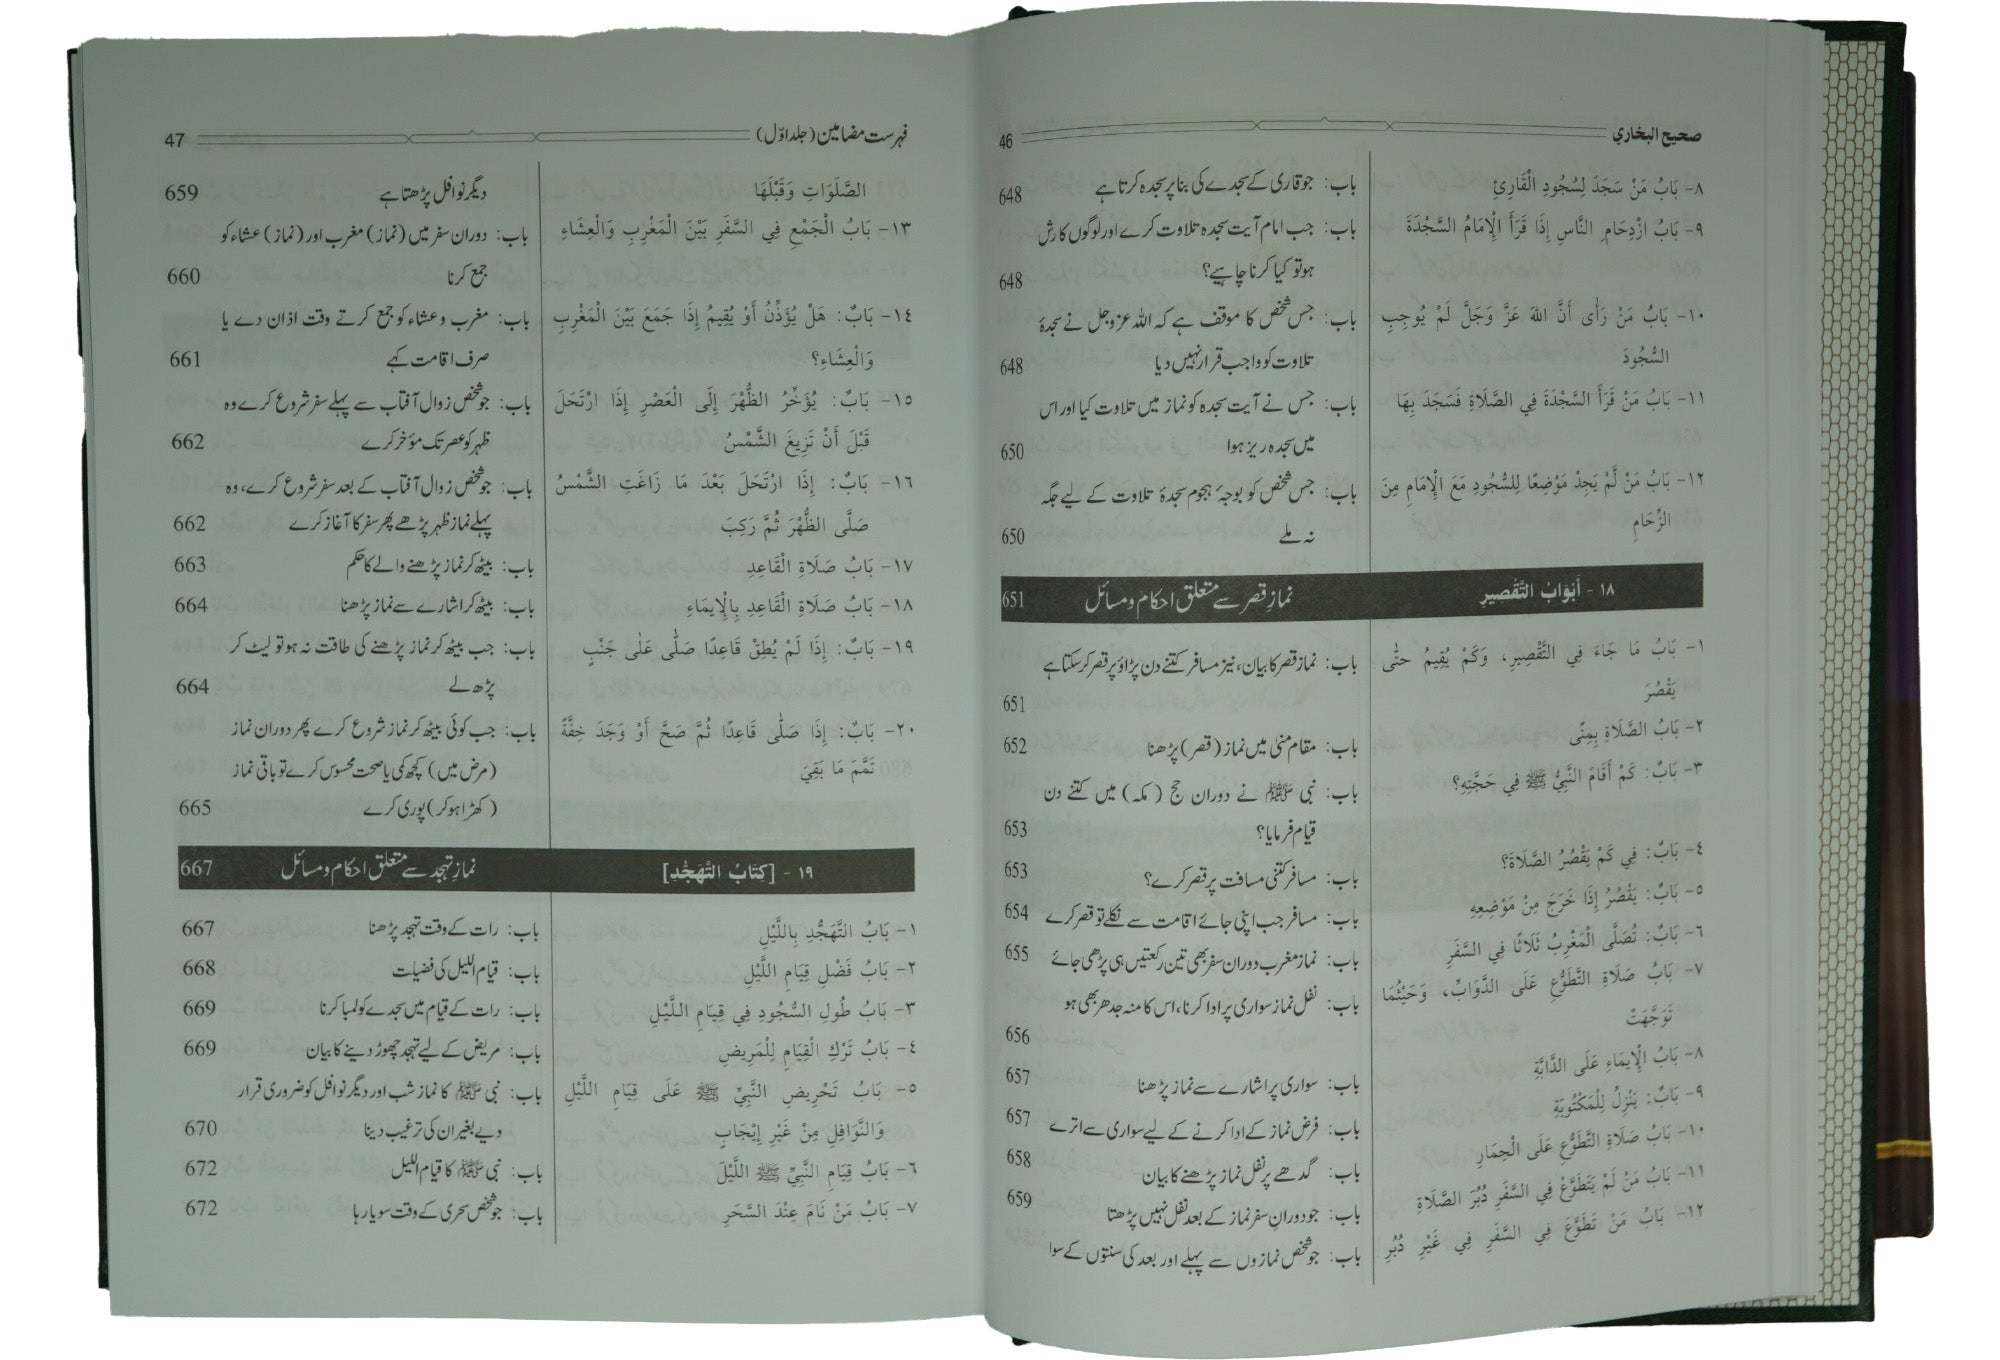 صحيح البخاري 46
٨- بَابُ مَنْ سَجَدَ لِسُجُودِ الْقَارِئِ
٩- بَابُ ازْدِحَامِ النَّاسِ إِذَا قَرَأَ الْإِمَامُ السَّجْدَةَ
١٠- بَابُ مَنْ رَأَى أَنَّ اللهَ عَزَّ وَجَلَّ لَمْ يُوجِبِ
السُّجُودَ
١١- بَابُ مَنْ قَرَأَ السَّجْدَةَ فِي الصَّلَاةِ فَسَجَدَ بِهَا
١٢- بَابُ مَنْ لَّمْ يَجِدْ مَوْضِعًا لِلسُّجُودِ مَعَ الْإِمَامِ مِنَ
الزِّحَامِ
باب: جو قاری کے سجدے کی بنا پر سجدہ کرتا ہے 648
باب: جب امام آیت سجدہ تلاوت کرے اور لوگوں کا رش
ہو تو کیا کرنا چاہیے؟ 648
باب: جس شخص کا موقف ہے کہ اللہ عزوجل نے سجدۂ
تلاوت کو واجب قرار نہیں دیا 648
باب: جس نے آیت سجدہ کو نماز میں تلاوت کیا اور اس
میں سجدہ ریز ہوا 650
باب: جس شخص کو بوجہ ہجوم سجدۂ تلاوت کے لیے جگہ
نہ ملے 650
١٨- أَبْوَابُ التَّقْصِيرِ نمازِ قصر سے متعلق احکام و مسائل 651
١- بَابُ مَا جَاءَ فِي التَّقْصِيرِ، وَكَمْ يُقِيمُ حتَّى
يَقْصُرَ
٢- بَابُ الصَّلَاةِ بِمِنًى
٣- بَابٌ: كَمْ أَقَامَ النَّبِيُّ ﷺ فِي حَجَّتِهِ؟
٤- بَابٌ: فِي كَمْ يَقْصُرُ الصَّلَاةَ؟
٥- بَابٌ: يَقْصُرُ إِذَا خَرَجَ مِنْ مَوْضِعِهِ
٦- بَابٌ: تُصَلَّى الْمَغْرِبُ ثَلَاثًا فِي السَّفَرِ
٧- بَابُ صَلَاةِ التَّطَوُّعِ عَلَى الدَّوَابِّ، وَحَيْثُمَا
تَوَجَّهَتْ
٨- بَابُ الْإِيمَاءِ عَلَى الدَّابَّةِ
٩- بَابٌ: يَنْزِلُ لِلْمَكْتُوبَةِ
١٠- بَابُ صَلَاةِ التَّطَوُّعِ عَلَى الْحِمَارِ
١١- بَابُ مَنْ لَمْ يَتَطَوَّعْ فِي السَّفَرِ دُبُرَ الصَّلَاةِ
١٢- بَابُ مَنْ تَطَوَّعَ فِي السَّفَرِ فِي غَيْرِ دُبُرِ
باب: نماز قصر کا بیان، نیز مسافر کتنے دن پڑاؤ پر قصر کر سکتا ہے
651
باب: مقام منیٰ میں نماز (قصر) پڑھنا 652
باب: نبی ﷺ نے دوران حج (مکہ) میں کتنے دن
قیام فرمایا؟ 653
باب: مسافر کتنی مسافت پر قصر کرے؟ 653
باب: مسافر جب اپنی جائے اقامت سے نکلے تو قصر کرے 654
باب: نماز مغرب دوران سفر بھی تین رکعتیں ہی پڑھی جائے 655
باب: نفل نماز سواری پر ادا کرنا، اس کا منہ جدھر بھی ہو
656
باب: سواری پر اشارے سے نماز پڑھنا 657
باب: فرض نماز کے ادا کرنے کے لیے سواری سے اترے 657
باب: گدھے پر نفل نماز پڑھنے کا بیان 658
باب: جو دورانِ سفر نماز کے بعد نفل نہیں پڑھتا 659
باب: جو شخص نمازوں سے پہلے اور بعد کی سنتوں کے سوا
فہرست مضامین (جلد اوّل) 47
الصَّلَوَاتِ وَقَبْلَهَا
١٣- بَابُ الْجَمْعِ فِي السَّفَرِ بَيْنَ الْمَغْرِبِ وَالْعِشَاءِ
١٤- بَابٌ: هَلْ يُؤَذِّنُ أَوْ يُقِيمُ إِذَا جَمَعَ بَيْنَ الْمَغْرِبِ
وَالْعِشَاءِ؟
١٥- بَابٌ: يُؤَخِّرُ الظُّهْرَ إِلَى الْعَصْرِ إِذَا ارْتَحَلَ
قَبْلَ أَنْ تَزِيغَ الشَّمْسُ
١٦- بَابٌ: إِذَا ارْتَحَلَ بَعْدَ مَا زَاغَتِ الشَّمْسُ
صَلَّى الظُّهْرَ ثُمَّ رَكِبَ
١٧- بَابُ صَلَاةِ الْقَاعِدِ
١٨- بَابُ صَلَاةِ الْقَاعِدِ بِالْإِيمَاءِ
١٩- بَابٌ: إِذَا لَمْ يُطِقْ قَاعِدًا صَلَّى عَلَى جَنْبٍ
٢٠- بَابٌ: إِذَا صَلَّى قَاعِدًا ثُمَّ صَحَّ أَوْ وَجَدَ خِفَّةً
تَمَّمَ مَا بَقِيَ
دیگر نوافل پڑھتا ہے 659
باب: دوران سفر میں (نماز) مغرب اور (نماز) عشاء کو
جمع کرنا 660
باب: مغرب و عشاء کو جمع کرتے وقت اذان دے یا
صرف اقامت کہے 661
باب: جو شخص زوال آفتاب سے پہلے سفر شروع کرے وہ
ظہر کو عصر تک مؤخر کرے 662
باب: جو شخص زوال آفتاب کے بعد سفر شروع کرے، وہ
پہلے نماز ظہر پڑھے پھر سفر کا آغاز کرے 662
باب: بیٹھ کر نماز پڑھنے والے کا حکم 663
باب: بیٹھ کر اشارے سے نماز پڑھنا 664
باب: جب بیٹھ کر نماز پڑھنے کی طاقت نہ ہو تو لیٹ کر
پڑھ لے 664
باب: جب کوئی بیٹھ کر نماز شروع کرے پھر دوران نماز
(مرض میں) کچھ کمی یا صحت محسوس کرے تو باقی نماز
(کھڑا ہو کر) پوری کرے 665
١٩- [كِتَابُ التَّهَجُّدِ] نمازِ تہجد سے متعلق احکام و مسائل 667
١- بَابُ التَّهَجُّدِ بِاللَّيْلِ
٢- بَابُ فَضْلِ قِيَامِ اللَّيْلِ
٣- بَابُ طُولِ السُّجُودِ فِي قِيَامِ اللَّيْلِ
٤- بَابُ تَرْكِ الْقِيَامِ لِلْمَرِيضِ
٥- بَابُ تَحْرِيضِ النَّبِيِّ ﷺ عَلَى قِيَامِ اللَّيْلِ
وَالنَّوَافِلِ مِنْ غَيْرِ إِيْجَابٍ
٦- بَابُ قِيَامِ النَّبِيِّ ﷺ اللَّيْلَ
٧- بَابُ مَنْ نَامَ عِنْدَ السَّحَرِ
باب: رات کے وقت تہجد پڑھنا 667
باب: قیام اللیل کی فضیات 668
باب: رات کے قیام میں سجدے کو لمبا کرنا 669
باب: مریض کے لیے تہجد چھوڑ دینے کا بیان 669
باب: نبی ﷺ کا نماز شب اور دیگر نوافل کو ضروری قرار
دیے بغیر ان کی ترغیب دینا 670
باب: نبی ﷺ کا قیام اللیل 672
باب: جو شخص سحری کے وقت سویا رہا 672